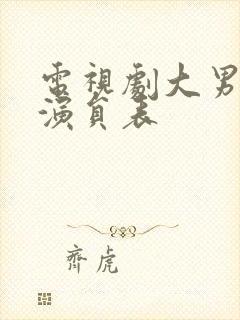 電視劇大男
演員表
齊虎